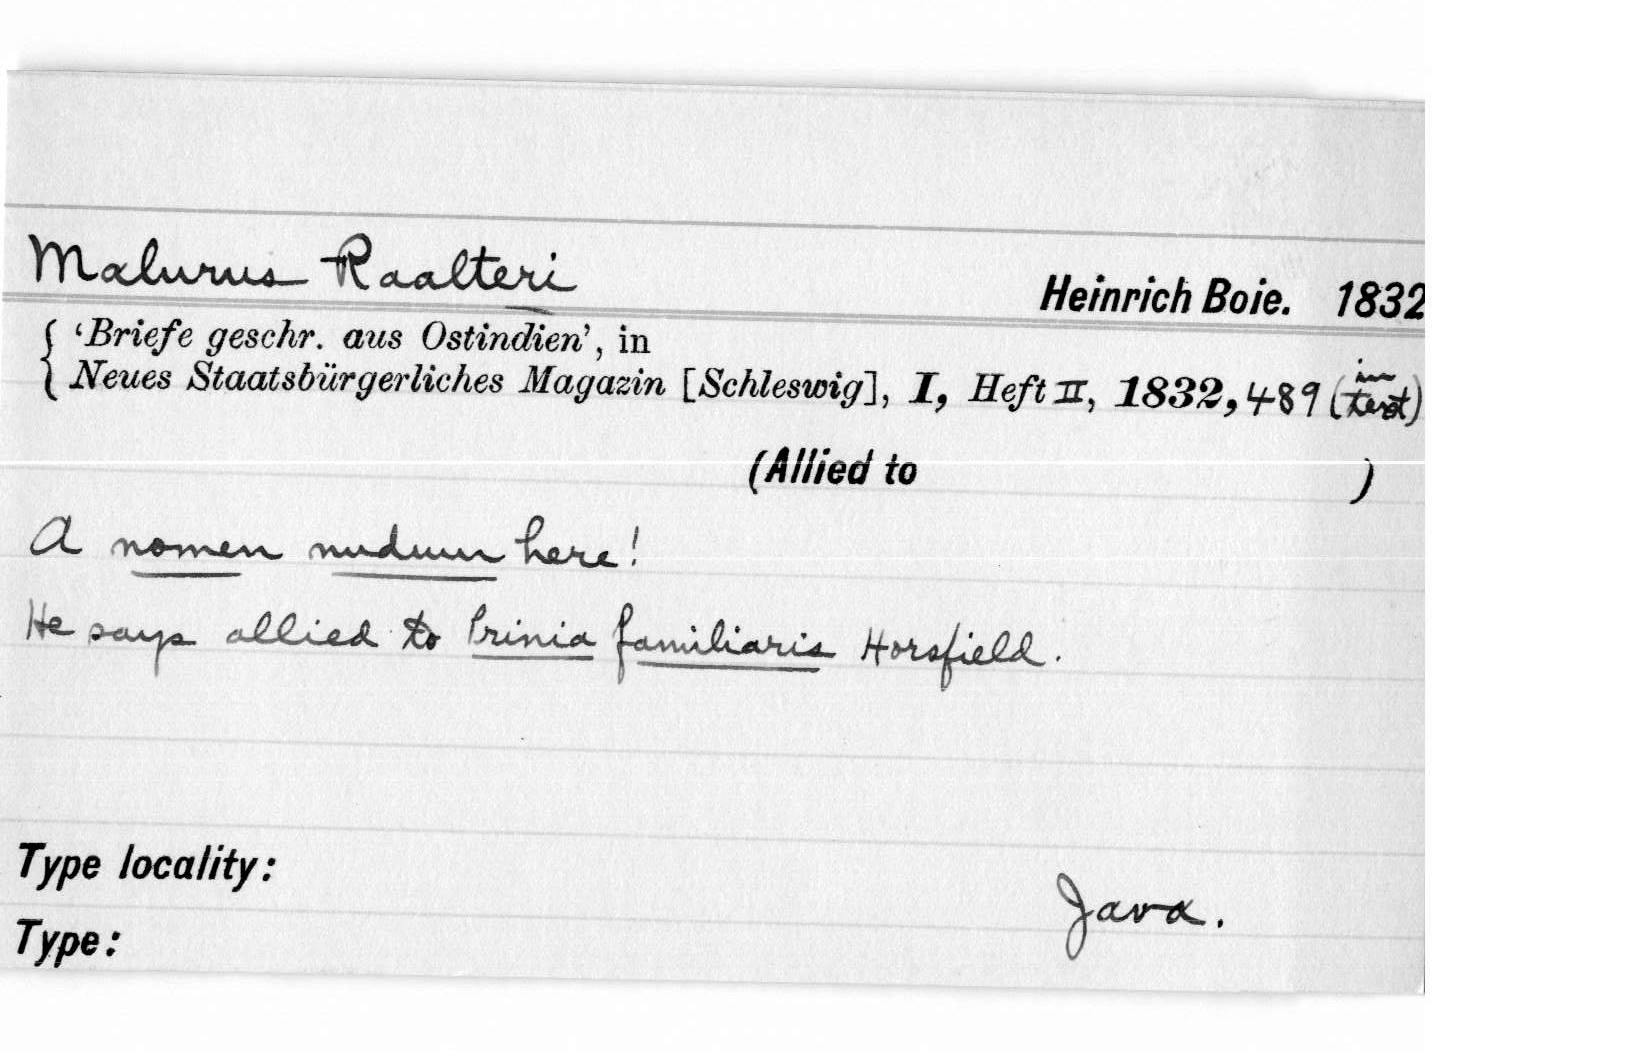 Malurus Raalteri
Heinrich Boie. 1832
'Briefe geschr. aus Ostindien', in
Neues Staatsbürgerliches Magazin [Schleswig], I, Heft II, 1832, 489 (in text)
(Allied to )
A nomen nudum here!
He says allied to Prinia familiaris Horsfield.
Type locality:
Java.
Type: